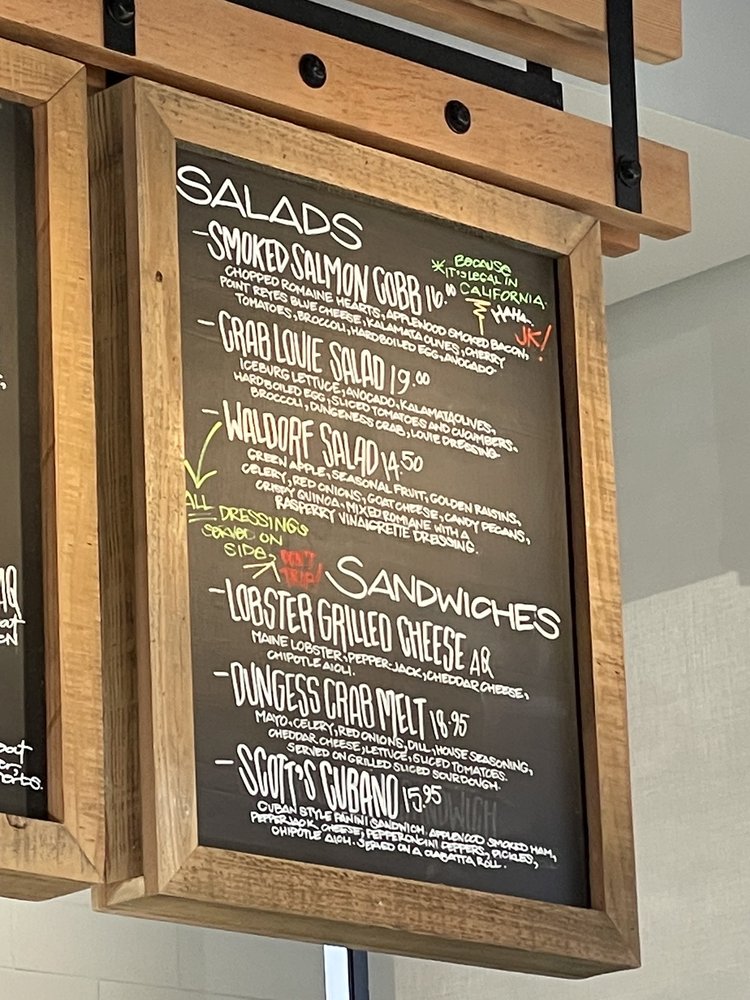 SALADS
-SMOKED SALMON COBB 16.00
CHOPPED ROMAINE HEARTS, APPLEWOOD SMOKED BACON,
POINT REYES BLUE CHEESE, KALAMATA OLIVES, CHERRY
TOMATOES, BROCCOLI, HARDBOILED EGG, AVOCADO
* BECAUSE
IT'S LEGAL IN
CALIFORNIA.
HAHA.
JK!
-CRAB LOUIE SALAD 19.00
ICEBURG LETTUCE, AVOCADO, KALAMATA OLIVES,
HARDBOILED EGG, SLICED TOMATOES AND CUCUMBERS,
BROCCOLI, DUNGENESS CRAB, LOUIE DRESSING.
-WALDORF SALAD 14.50
GREEN APPLE, SEASONAL FRUIT, GOLDEN RAISINS,
CELERY, RED ONIONS, GOAT CHEESE, CANDY PECANS,
CRISPY QUINOA, MIXED ROMIANE WITH A
RASPERRY VINAIGRETTE DRESSING.
ALL DRESSINGS
SERVED ON
SIDE,
DON'T
TRIP!
SANDWICHES
-LOBSTER GRILLED CHEESE AQ
MAINE LOBSTER, PEPPER-JACK, CHEDDAR CHEESE,
CHIPOTLE AIOLI.
-DUNGESS CRAB MELT 18.95
MAYO, CELERY, RED ONIONS, DILL, HOUSE SEASONING,
CHEDDAR CHEESE, LETTUCE, SLICED TOMATOES.
SERVED ON GRILLED SLICED SOURDOUGH.
-SCOTT'S CUBANO 15.95
CUBAN STYLE PANINI SANDWICH. APPLEWOOD SMOKED HAM,
PEPPERJACK, CHEESE, PEPPERONCINI PEPPERS, PICKLES,
CHIPOTLE AIOLI. SERVED ON A CIABATTA ROLL.